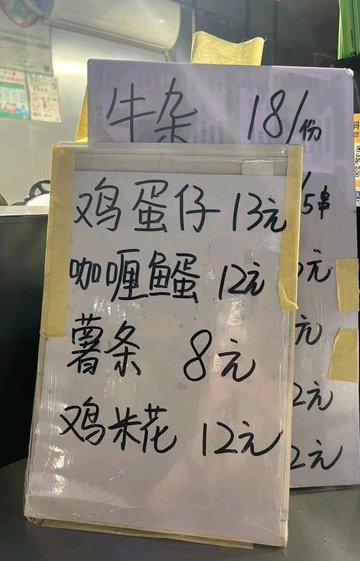 牛杂 18/份
鸡蛋仔 13元
咖喱鱼蛋 12元
薯条 8元
鸡米花 12元
/5串
元
元
2元
2元